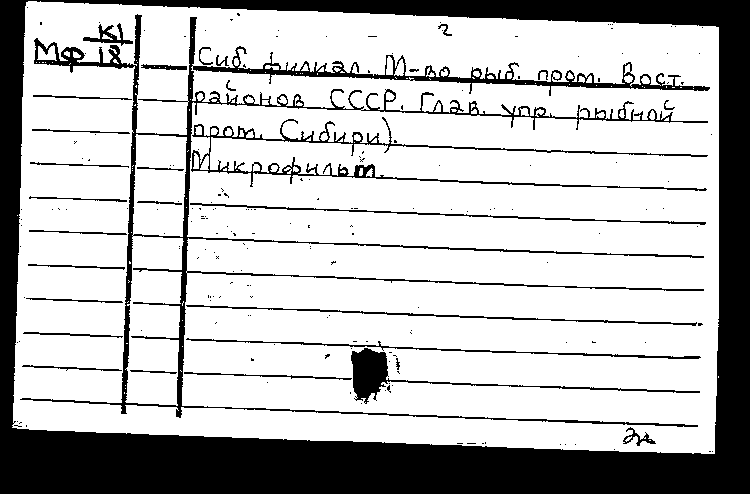 2
К1
МФ 18
Сиб. филиал. М-во рыб. пром. Вост.
районов СССР. Глав. упр. рыбной
пром. Сибири).
Микрофильм.